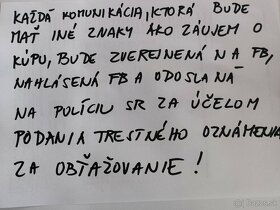 KAŽDÁ KOMUNIKÁCIA, KTORÁ BUDE
MAŤ INÉ ZNAKY AKO ZÁUJEM O
KÚPU, BUDE ZVEREJNENÁ NA FB,
NAHLÁSENÁ FB A ODOSLANÁ
NA POLÍCIU SR ZA ÚČELOM
PODANIA TRESTNÉHO OZNÁMENIA
ZA OBŤAŽOVANIE!
Bazos.sk